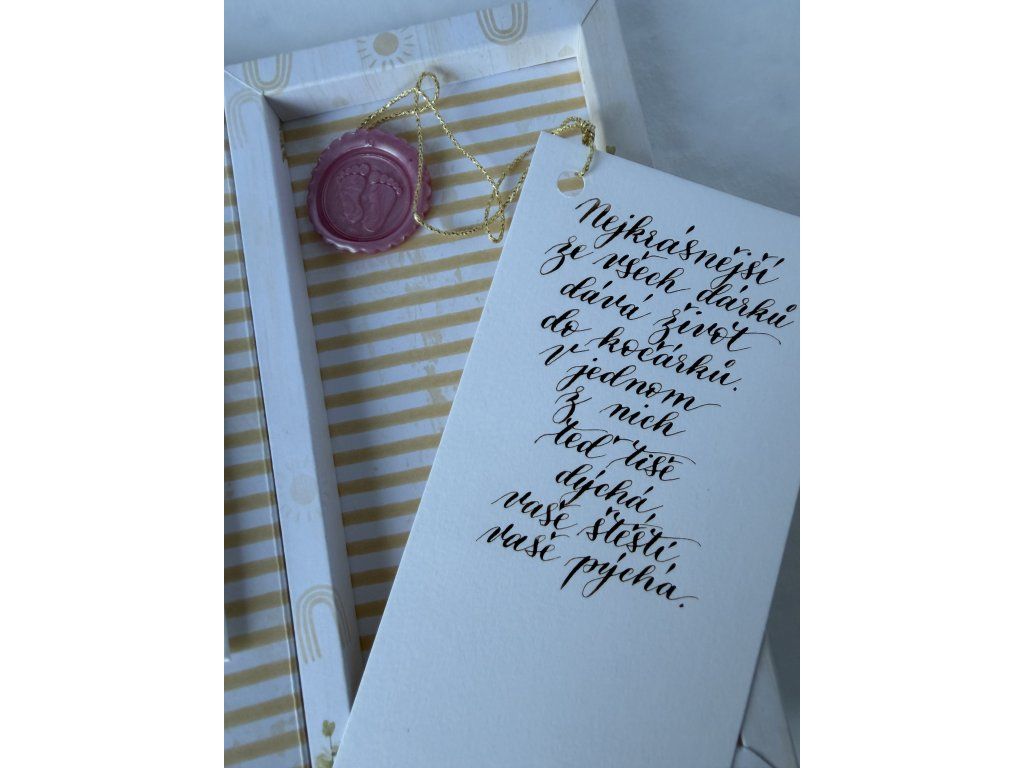 Nejkrásnější
ze všech dárků
dává život
do kočárků.
v jednom
z nich
teď tiše
dýchá,
vaše štěstí,
vaše pýcha.